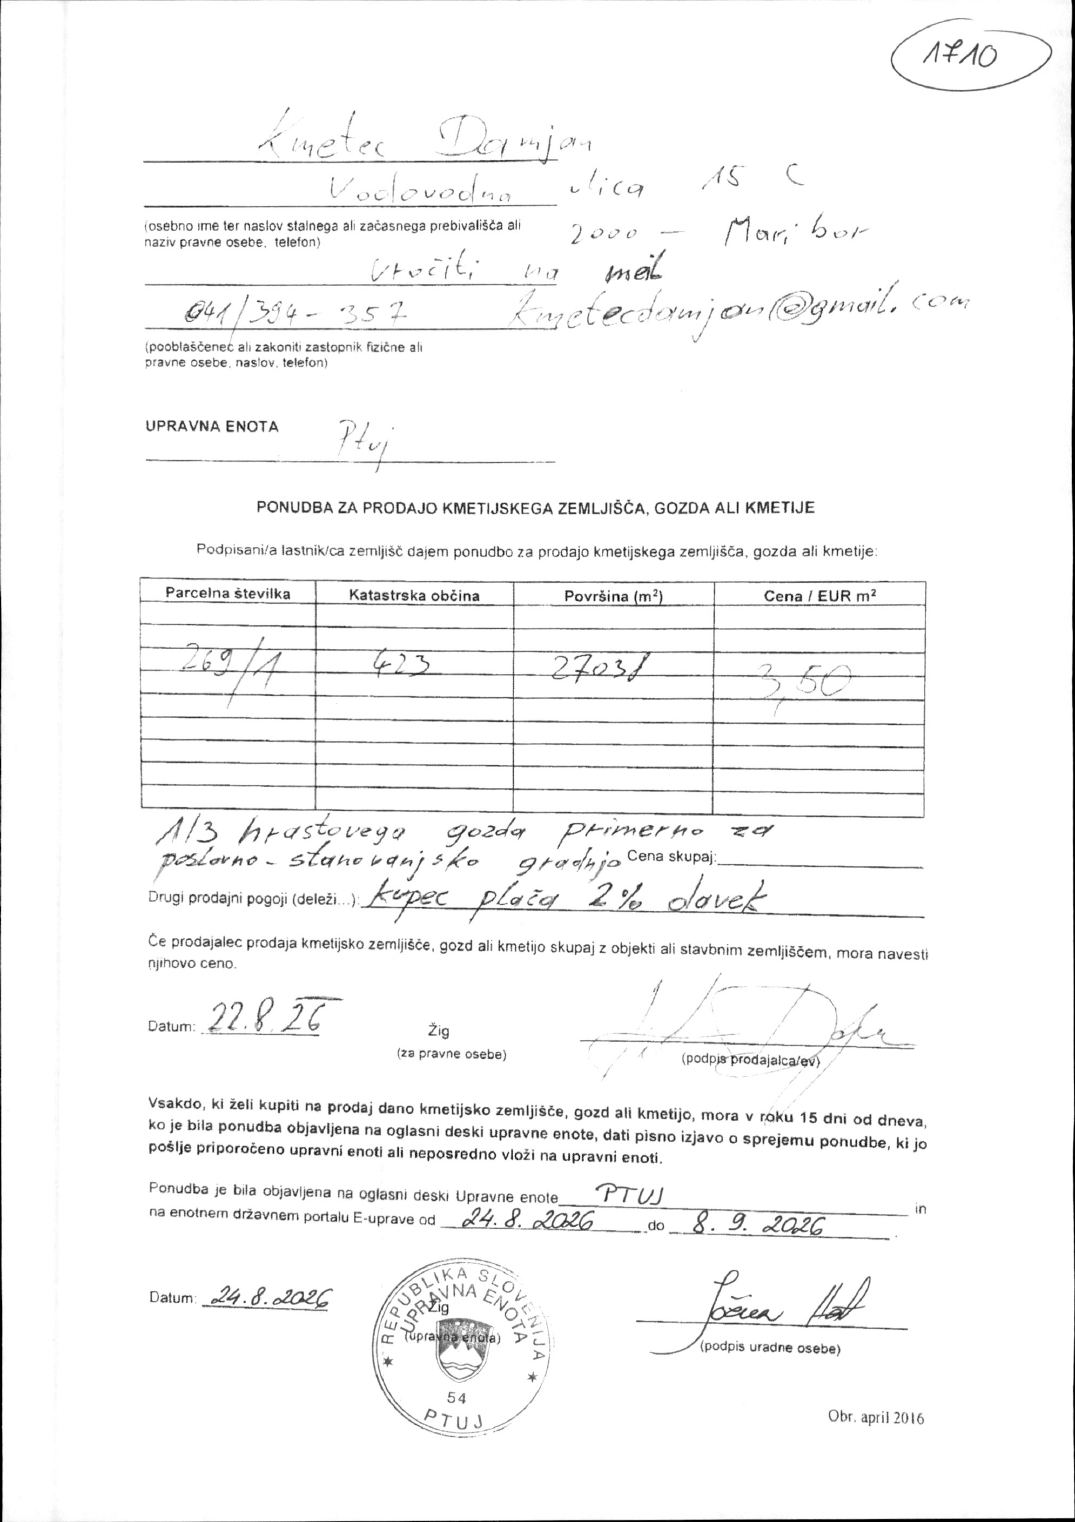 1710
Kmetec Damjan
Vodovodna ulica 15 C
(osebno ime ter naslov stalnega ali začasnega prebivališča ali
naziv pravne osebe, telefon)
2000 - Maribor
Vročiti na mail
041/394-357 kmetecdamjan@gmail.com
(pooblaščenec ali zakoniti zastopnik fizične ali
pravne osebe, naslov, telefon)
UPRAVNA ENOTA Ptuj
PONUDBA ZA PRODAJO KMETIJSKEGA ZEMLJIŠČA, GOZDA ALI KMETIJE
Podpisani/a lastnik/ca zemljišč dajem ponudbo za prodajo kmetijskega zemljišča, gozda ali kmetije:
Parcelna številka Katastrska občina Površina (m²) Cena / EUR m²
269/1 423 27038 3,50
1/3 hrastovega gozda primerno za
poslovno - stanovanjsko gradnjo Cena skupaj:
Drugi prodajni pogoji (deleži...): kupec plača 2% davek
Če prodajalec prodaja kmetijsko zemljišče, gozd ali kmetijo skupaj z objekti ali stavbnim zemljiščem, mora navesti
njihovo ceno.
Datum: 22.8.26 Žig
(za pravne osebe) (podpis prodajalca/ev)
Vsakdo, ki želi kupiti na prodaj dano kmetijsko zemljišče, gozd ali kmetijo, mora v roku 15 dni od dneva,
ko je bila ponudba objavljena na oglasni deski upravne enote, dati pisno izjavo o sprejemu ponudbe, ki jo
pošlje priporočeno upravni enoti ali neposredno vloži na upravni enoti.
Ponudba je bila objavljena na oglasni deski Upravne enote PTUJ in
na enotnem državnem portalu E-uprave od 24.8.2026 do 8.9.2026.
Datum: 24.8.2026 Žig
(upravna enota)
REPUBLIKA SLOVENIJA
UPRAVNA ENOTA
54
PTUJ
(podpis uradne osebe)
Obr. april 2016